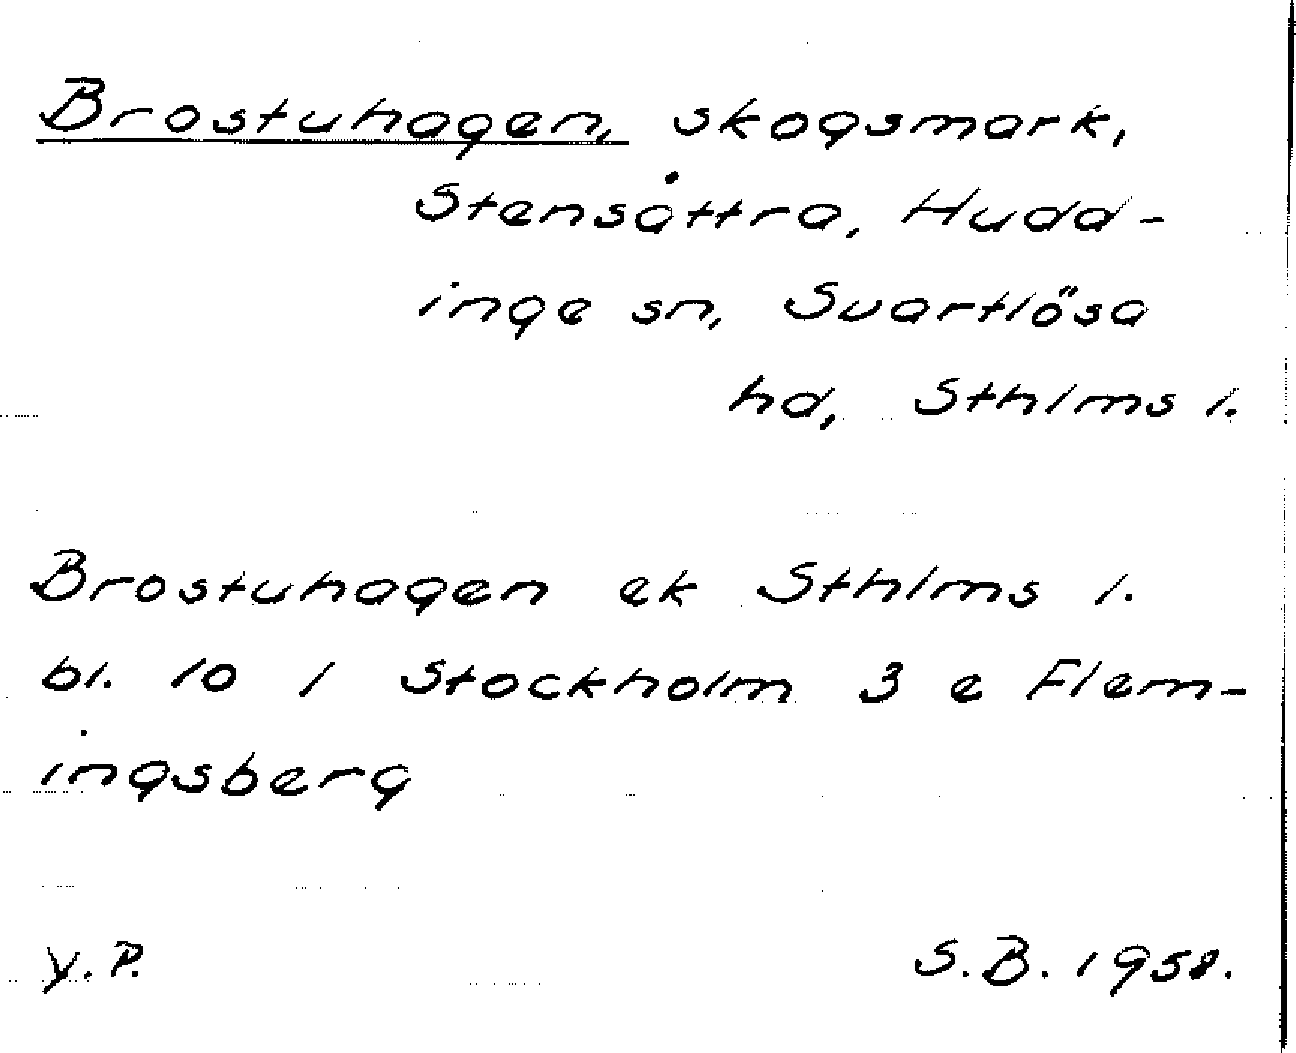 Brostuhagen, skogsmark,
Stensåttra, Hudd-
inge sn, Svartlösa
hd, Sthlms l.
Brostuhagen ek Sthlms l.
bl. 10 / Stockholm 3 e Flem-
ingsberg
Y.P. S.B. 1958.